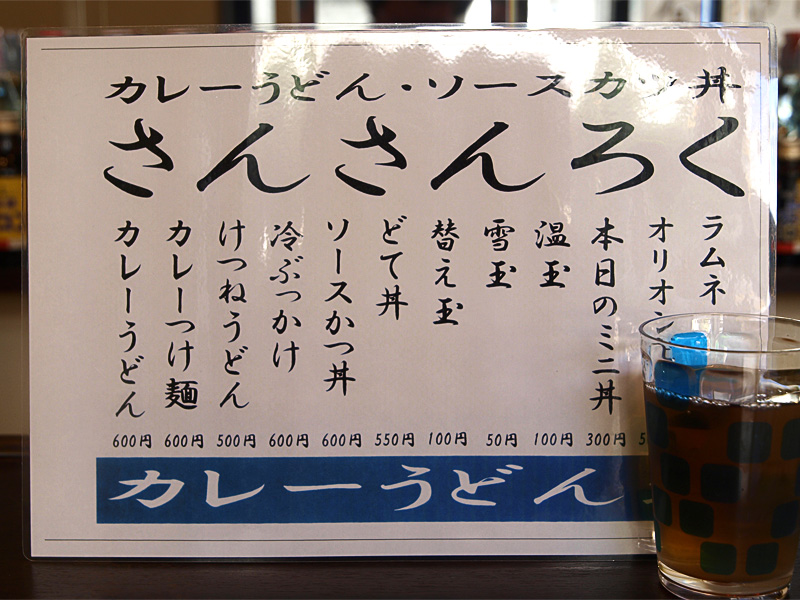 カレーうどん・ソースカツ丼
さんさんろく
カレーうどん 600円
カレーつけ麺 600円
けつねうどん 500円
冷ぶっかけ 600円
ソースかつ丼 600円
どて丼 550円
替え玉 100円
雪玉 50円
温玉 100円
本日のミニ丼 300円
オリオン
ラムネ
カレーうどん